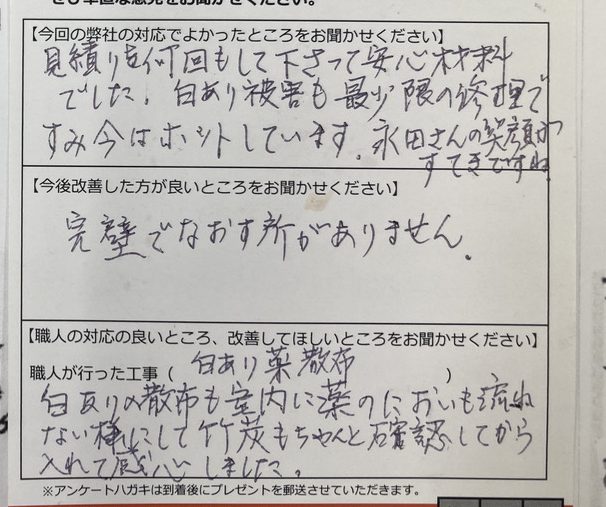 ぜひ率直な意見をお聞かせください。
【今回の弊社の対応でよかったところをお聞かせください】
見積りを何回もして下さって安心材料
でした。白あり被害も最少限の修理で
すみ今はホットしています。永田さんの笑顔が
すてきですね
【今後改善した方が良いところをお聞かせください】
完璧でなおす所がありません。
【職人の対応の良いところ、改善してほしいところをお聞かせください】
職人が行った工事（ 白あり薬散布 ）
白ありの散布も室内に薬のにおいも流れ
ない様にして竹炭もちゃんと確認してから
入れて感心しました。
※アンケートハガキは到着後にプレゼントを郵送させていただきます。